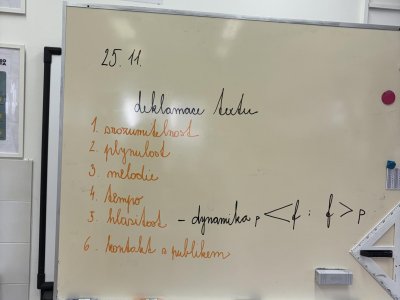 25. 11.
deklamace textu
1. srozumitelnost
2. plynulost
3. melodie
4. tempo
5. hlasitost - dynamika p < f : f > p
6. kontakt s publikem